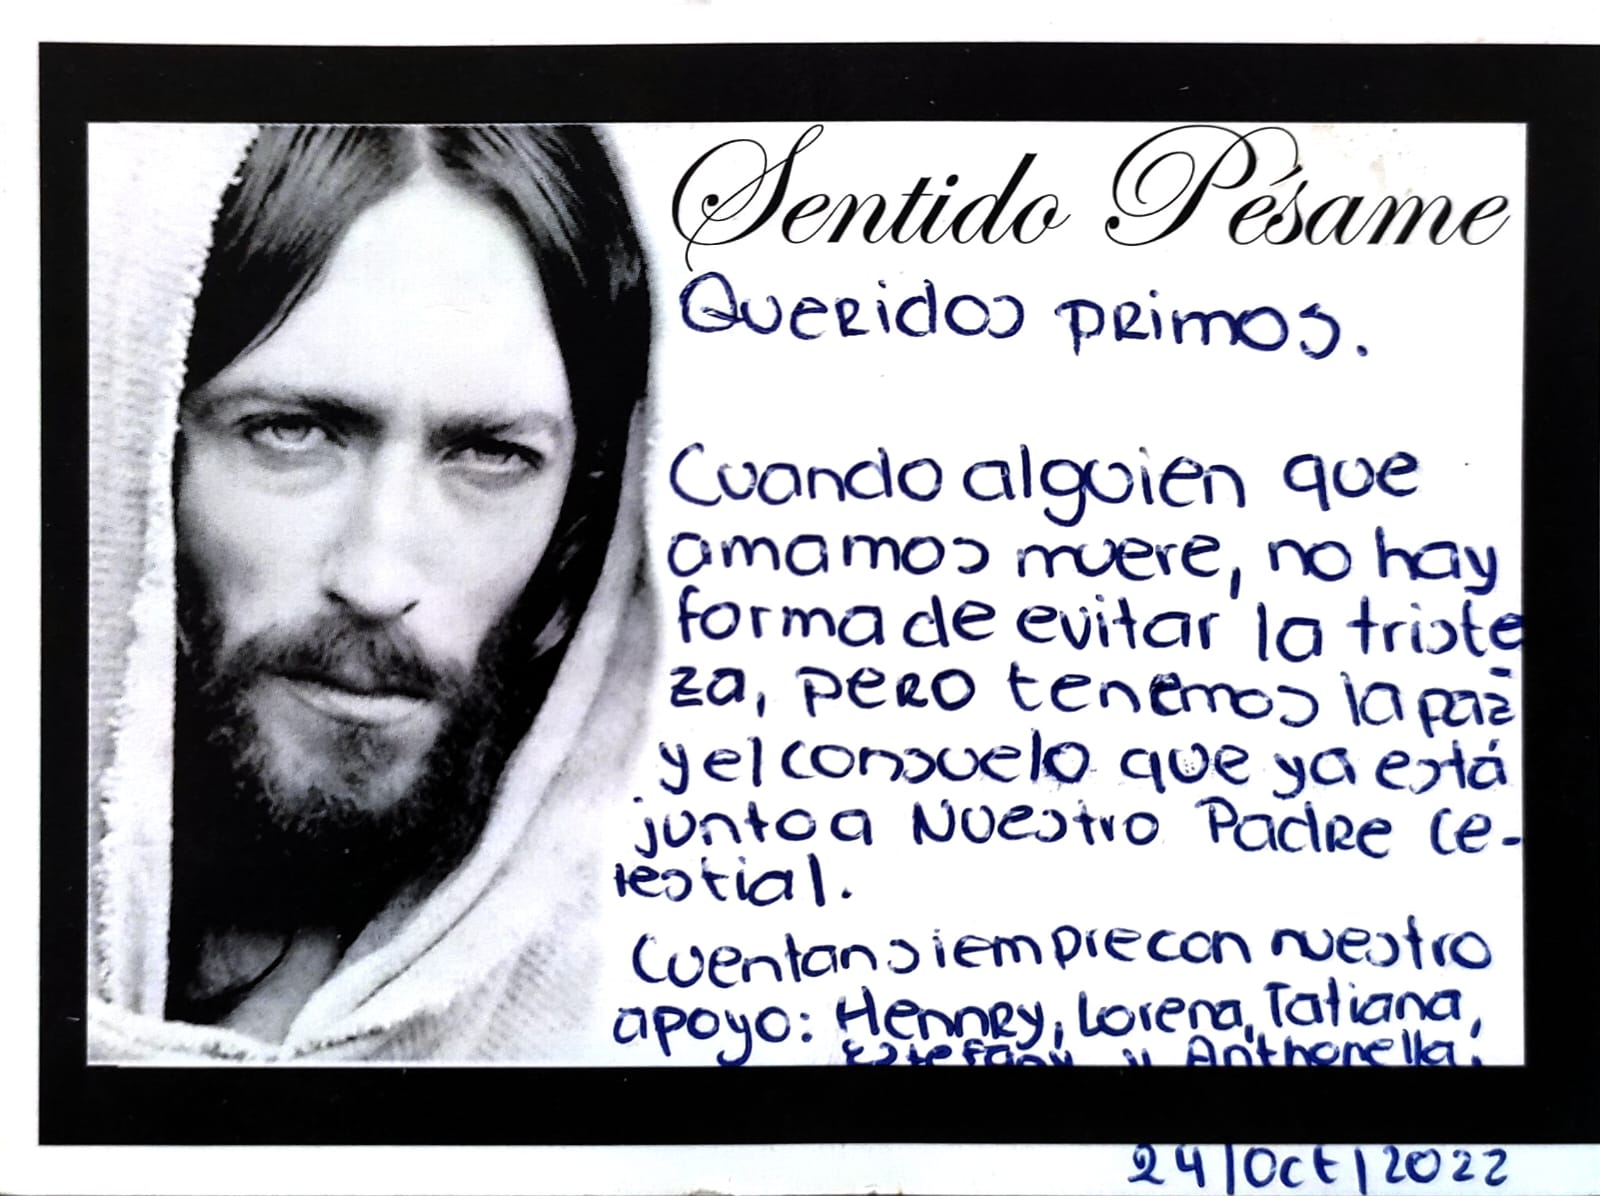 Sentido Pésame
Queridos primos.
Cuando alguien que
amamos muere, no hay
forma de evitar la triste
za, pero tenemos la paz
y el consuelo que ya está
junto a Nuestro Padre Ce-
lestial.
Cuentan siempre con nuestro
apoyo: Henney, Lorena, Tatiana,
Estefany y Anthonella.
24/Oct/2022